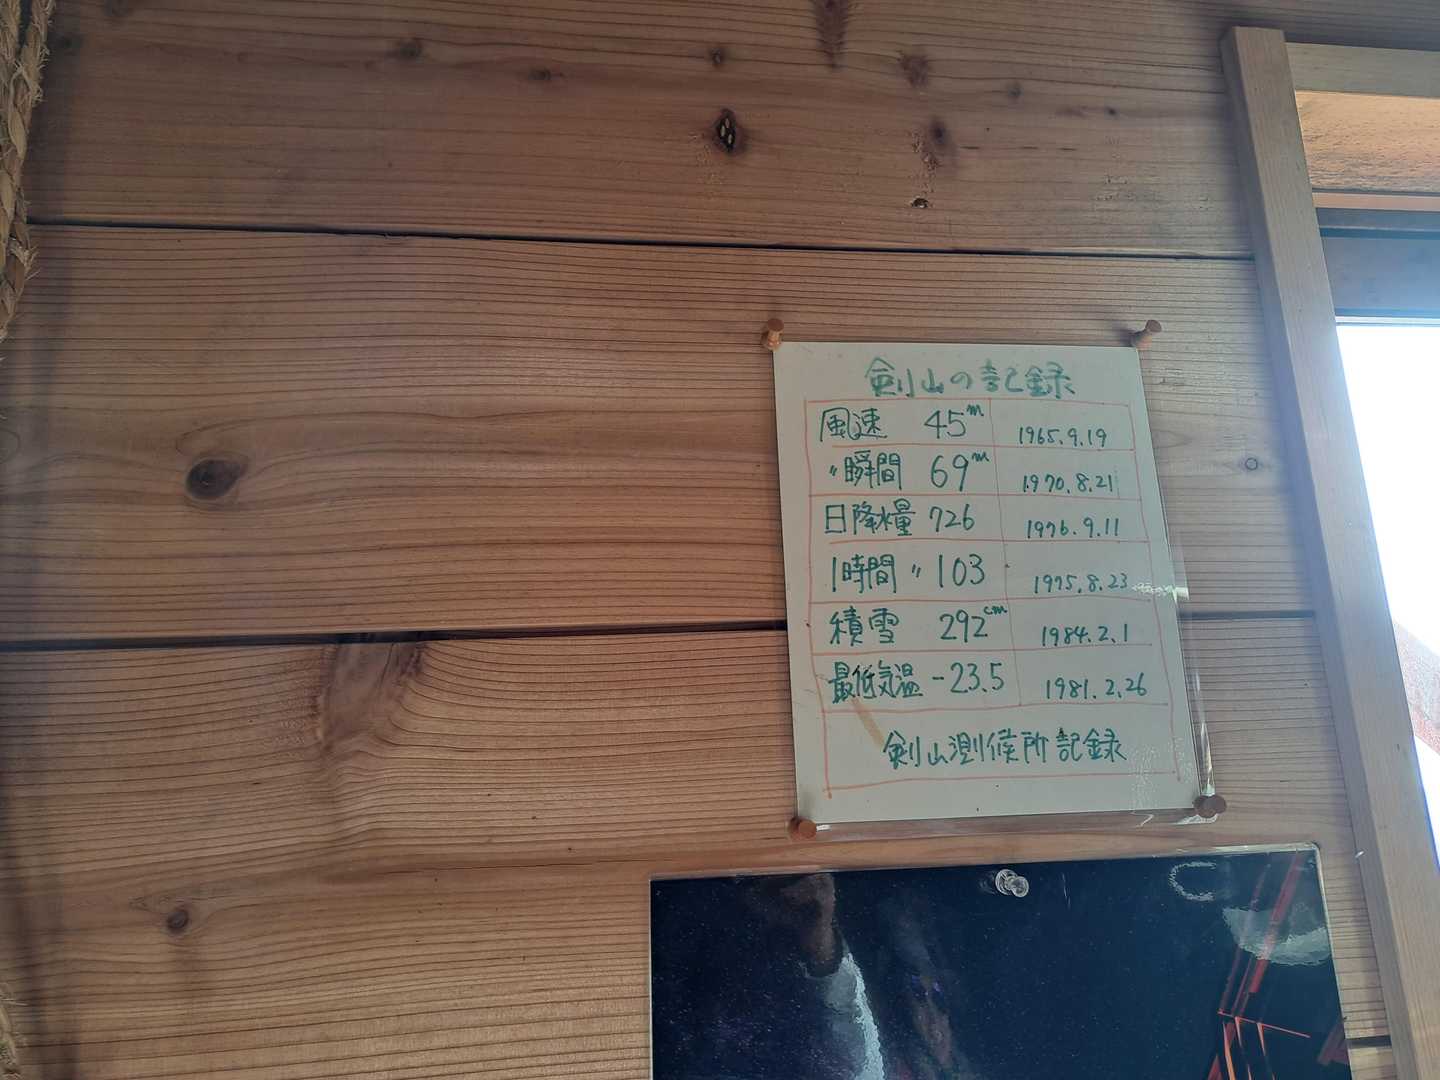 剣山の記録
風速 45m 1965.9.19
〃瞬間 69m 1970.8.21
日降水量 726 1976.9.11
1時間〃 103 1975.8.23
積雪 292cm 1984.2.1
最低気温 -23.5 1981.2.26
剣山測候所記録